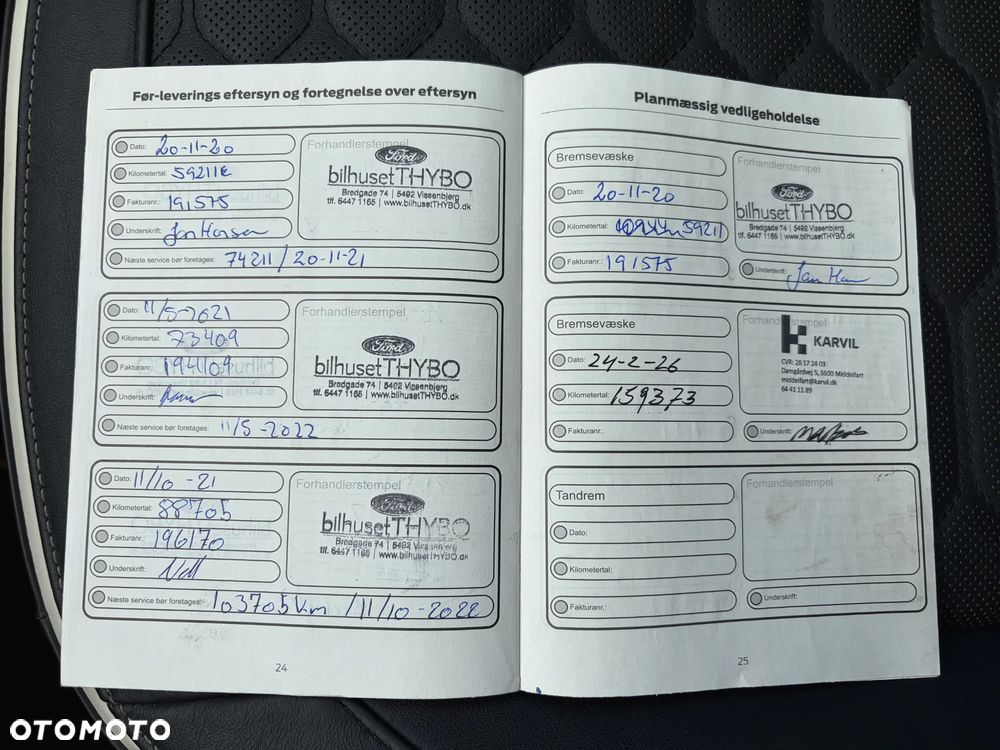 Før-leverings eftersyn og fortegnelse over eftersyn
Dato: 20-11-20
Kilometertal: 59211
Fakturanr.: 191575
Underskrift: Jan Hansen
Næste service bør foretages: 74211/20-11-21
Forhandlerstempel
Ford
bilhusetTHYBO
Bredgade 74 | 5492 Vissenbjerg
tlf. 6447 1165 | www.bilhusetTHYBO.dk
Dato: 11/5-2021
Kilometertal: 73409
Fakturanr.: 194109
Underskrift:
Næste service bør foretages: 11/5-2022
Forhandlerstempel
Ford
bilhusetTHYBO
Bredgade 74 | 5492 Vissenbjerg
tlf. 6447 1165 | www.bilhusetTHYBO.dk
Dato: 11/10-21
Kilometertal: 88705
Fakturanr.: 196170
Underskrift:
Næste service bør foretages: 103705km /11/10-2022
Forhandlerstempel
Ford
bilhusetTHYBO
Bredgade 74 | 5492 Vissenbjerg
tlf. 6447 1165 | www.bilhusetTHYBO.dk
24
Planmæssig vedligeholdelse
Bremsevæske
Dato: 20-11-20
Kilometertal: 59211
Fakturanr.: 191575
Forhandlerstempel
Ford
bilhusetTHYBO
Bredgade 74 | 5492 Vissenbjerg
tlf. 6447 1165 | www.bilhusetTHYBO.dk
Underskrift: Jan
Bremsevæske
Dato: 24-2-26
Kilometertal: 159373
Fakturanr.:
Forhandlerstempel
KARVIL
CVR: 26 17 24 03
Damgårdvej 5, 5500 Middelfart
middelfart@karvil.dk
64 41 11 89
Underskrift:
Tandrem
Dato:
Kilometertal:
Fakturanr.:
Forhandlerstempel
Underskrift:
25
OTOMOTO